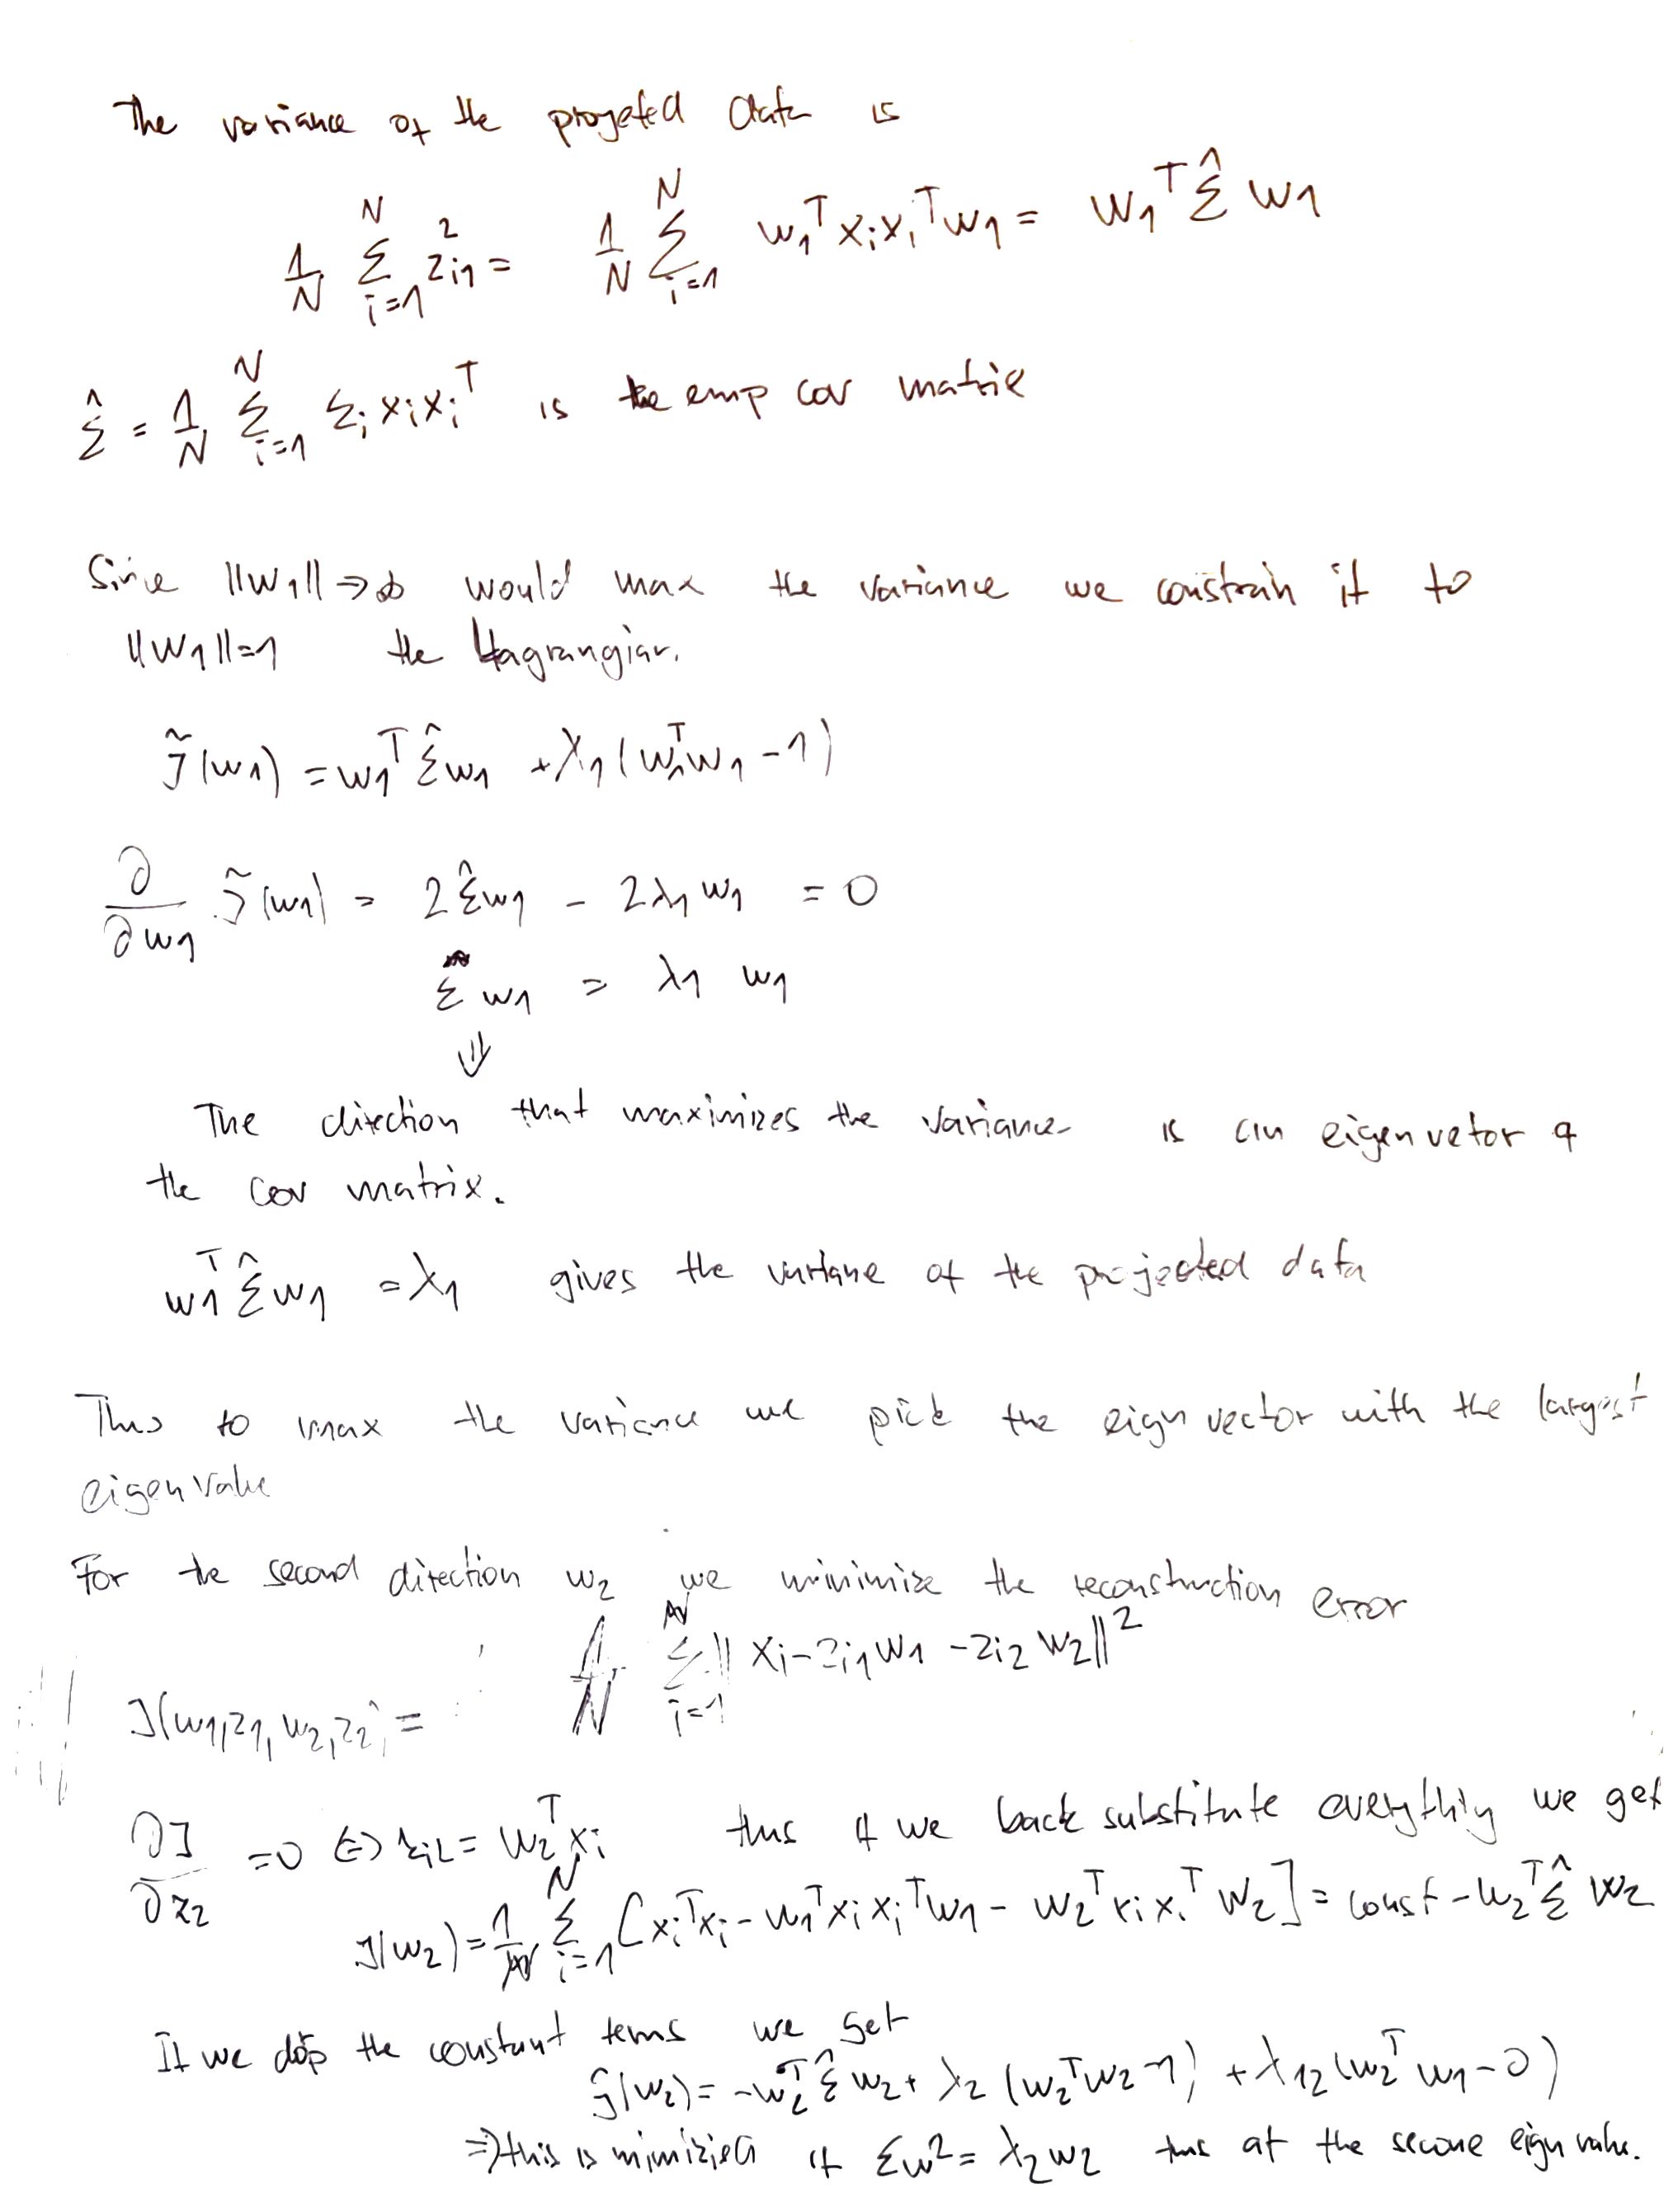 The variance of the progeted data is
1/N Σ_{i=1}^{N} z_{i1}^2 = 1/N Σ_{i=1}^{N} w_1^T x_i x_i^T w_1 = w_1^T Σ̂ w_1
Σ̂ = 1/N Σ_{i=1}^{N} Σ_i x_i x_i^T is the emp cov matrix
Since ||w_1|| → ∞ would max the variance we constrain it to
||w_1||=1 the Lagrangian.
J̃(w_1) = w_1^T Σ̂ w_1 + λ_1 (w_1^T w_1 - 1)
∂/∂w_1 J̃(w_1) = 2 Σ̂ w_1 - 2 λ_1 w_1 = 0
Σ w_1 = λ_1 w_1
⇓
The direction that maximizes the variance is an eigenvetor of
the cov matrix.
w_1^T Σ̂ w_1 = λ_1 gives the variane of the projected data
Thus to max the variance we pick the eign vector with the largest
eigenvalue
For the second direction w_2 we minimize the reconstruction error
J(w_1, z_1, w_2, z_2) = 1/N Σ_{i=1}^{N} || x_i - z_{i1} w_1 - z_{i2} w_2 ||^2
∂J/∂z_2 = 0 ⇔ z_{i2} = w_2^T x_i thus if we back substitute everything we get
J(w_2) = 1/N Σ_{i=1}^{N} [x_i^T x_i - w_1^T x_i x_i^T w_1 - w_2^T x_i x_i^T w_2] = const - w_2^T Σ̂ w_2
If we dop the constant terms we get
Ĵ(w_2) = -w_2^T Σ̂ w_2 + λ_2 (w_2^T w_2 - 1) + λ_{12} (w_2^T w_1 - 0)
⇒ this is minimized if Σw^2 = λ_2 w_2 thus at the secone eign value.